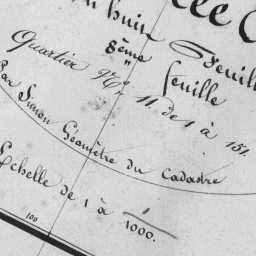 8ème feuille
Quartier N° 11. de 1 à 151.
Par Simon Géomètre du Cadastre
Echelle de 1 à 1/1000.
100